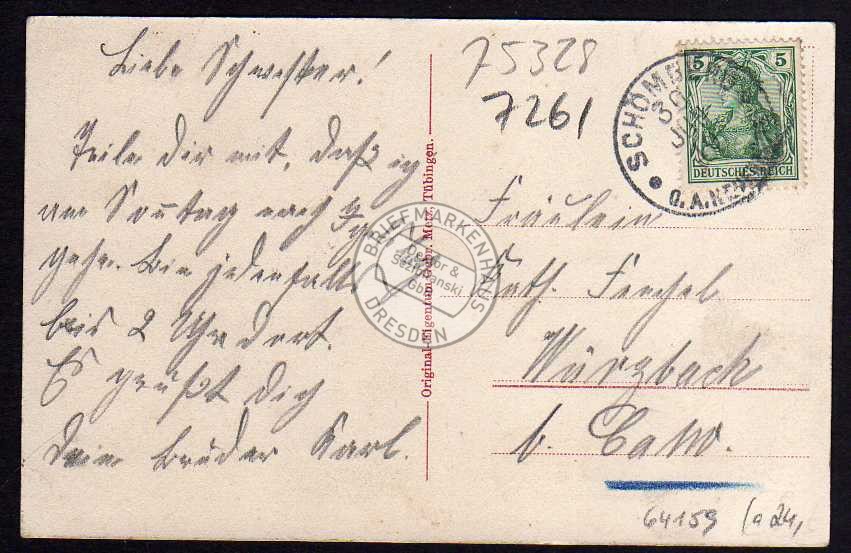 Liebe Schwester!
Teile dir mit, daß ich
am Sontag nach
gehe. Bin jedenfalls
bis 2 Uhr dort.
Es grüßt dich
Dein Bruder Karl.
Original-Eigentum Gebr. Metz, Tübingen.
75328
7261
5 5
DEUTSCHES REICH
SCHÖMB
O.A.N
Fräulein
Kath.
Würzbach
b. Calw.
64159 (a 24,
BRIEFMARKENHAUS
& Szczepanski
GbR
DRESDEN